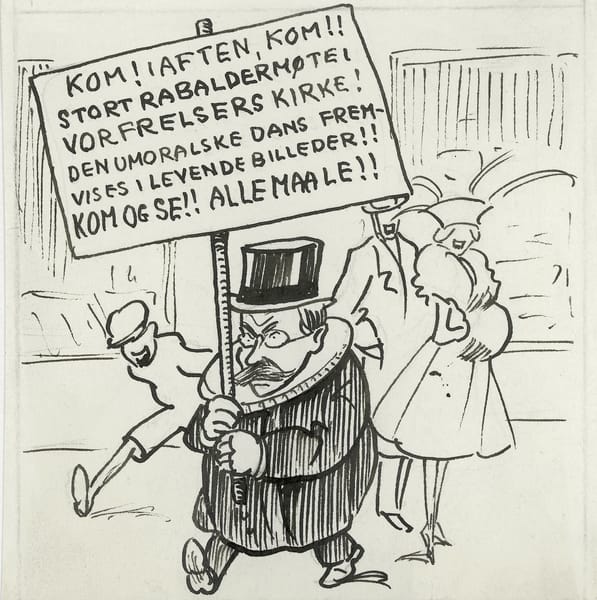 KOM! I AFTEN, KOM!!
STORT RABALDERMØTE I
VORFRELSERS KIRKE!
DEN UMORALSKE DANS FREM-
VISES I LEVENDE BILLEDER!!
KOM OG SE!! ALLE MAA LE!!